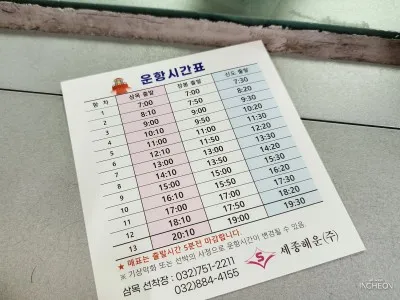 운항시간표
항 차 삼목 출발 장봉 출발 신도 출발
1 7:00 7:00 7:30
2 8:10 7:50 8:20
3 9:00 9:00 9:30
4 10:10 9:50 10:20
5 11:00 11:00 11:30
6 12:10 11:50 12:20
7 13:00 13:00 13:30
8 14:10 13:50 14:20
9 15:00 15:00 15:30
10 16:10 15:50 16:20
11 17:00 17:00 17:30
12 18:10 17:50 18:20
13 20:10 19:00 19:30
★ 매표는 출발시간 5분전 마감합니다.
※ 기상악화 또는 선박의 사정으로 운항시간이 변경될 수 있음.
삼목 선착장 : 032)751-2211
032)884-4155
세종해운(주)
INCHEON